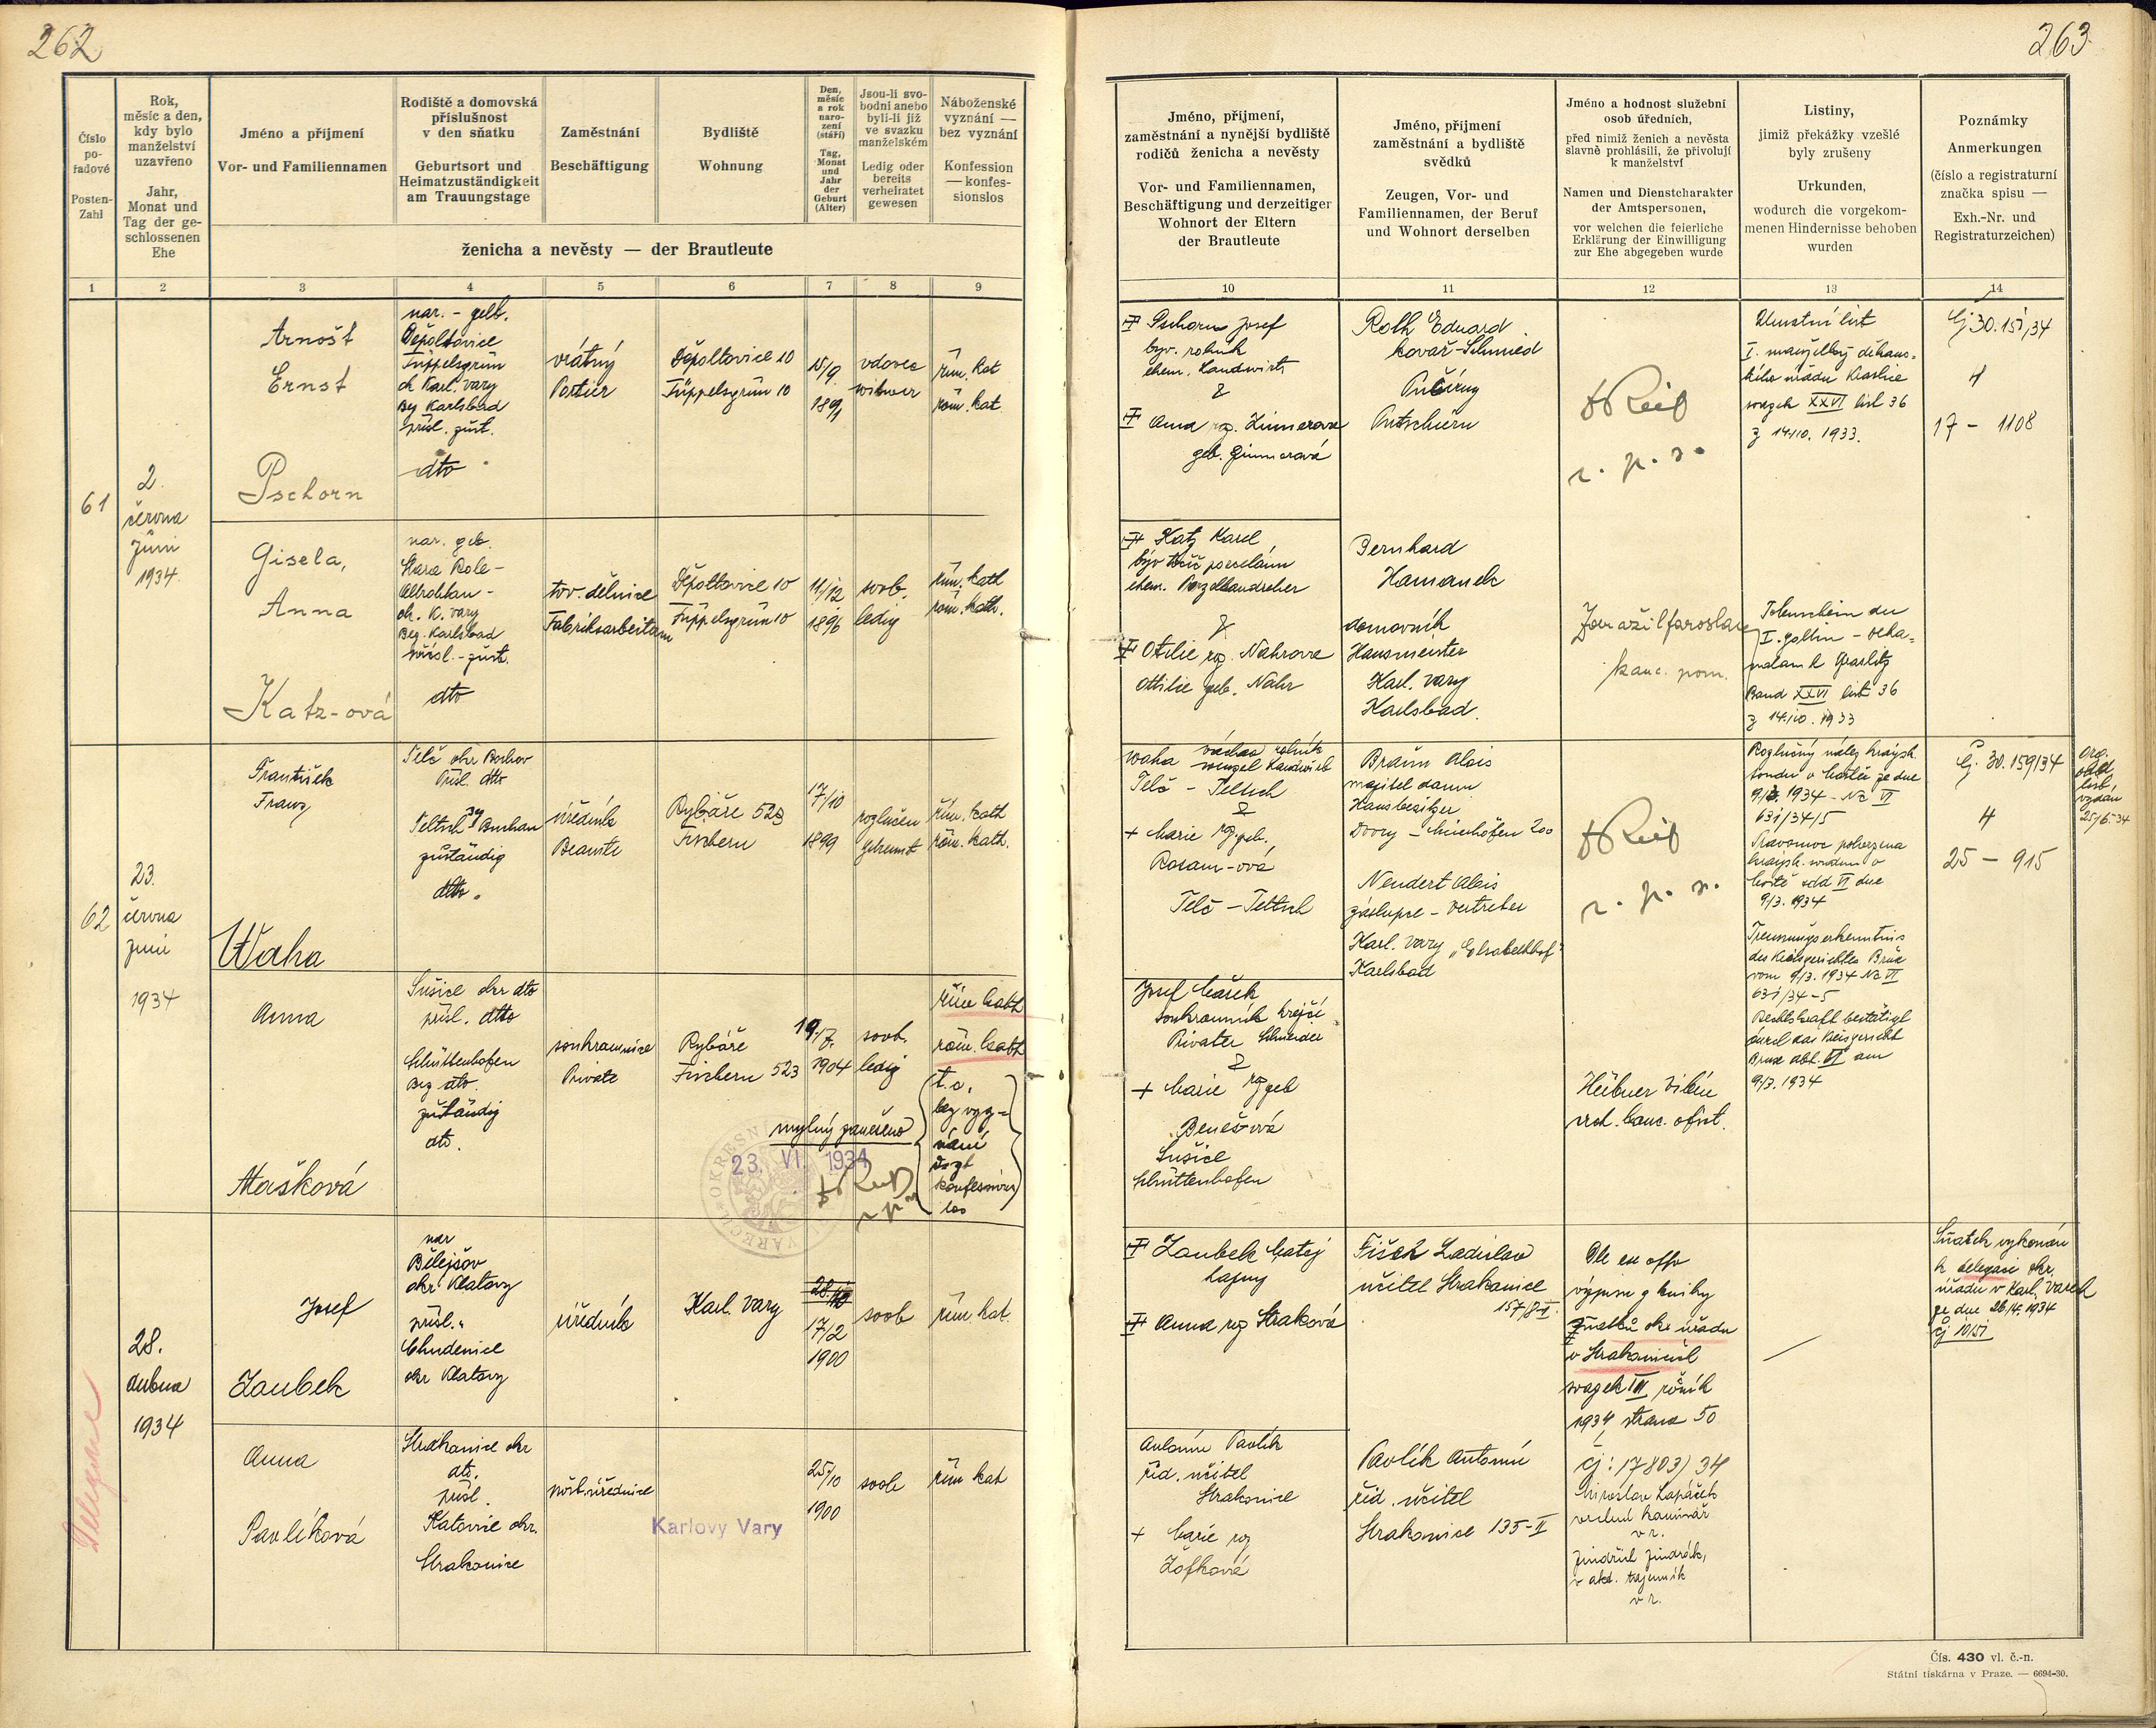 262
Číslo po-řadové
Posten-Zahl
Rok, měsíc a den, kdy bylo manželství uzavřeno
Jahr, Monat und Tag der ge-schlossenen Ehe
Jméno a příjmení
Vor- und Familiennamen
Rodiště a domovská příslušnost v den sňatku
Geburtsort und Heimatzuständigkeit am Trauungstage
Zaměstnání
Beschäftigung
Bydliště
Wohnung
Den, měsíc a rok naro-zení (stáří)
Tag, Monat und Jahr der Geburt (Alter)
Jsou-li svo-bodni anebo byli-li již ve svazku manželském
Ledig oder bereits verheiratet gewesen
Náboženské vyznání — bez vyznání
Konfession — konfes-sionslos
ženicha a nevěsty — der Brautleute
1 2 3 4 5 6 7 8 9
61
2.
června
Juni
1934.
Arnošt
Ernst
Pschorn
nar. - geb.
Děpoltovice
Tüppelsgrün
ok Karl. vary
Bez Karlsbad
přísl. zust.
dto
vrátný
Portier
Děpoltovice 10
Tüppelsgrün 10
15/9
1891
vdovec
witwer
řím. kat
röm. kat.
Gisela,
Anna
Katz-ová
nar. geb.
Stara Role -
Altrohlau -
ok. K. vary
Bez. Karlsbad
přísl. - zust.
dto
tov. dělnice
Fabriksarbeiterin
Děpoltovice 10
Tüppelsgrün 10
11/12
1896
svob.
ledig
řím. kath
röm. kath.
62
23.
června
Juni
1934
František
Franz
Waha
Telč okr Bochov
Přísl. dtto
Teltsch Bz Buchau
zuständig
dtto.
úředník
Beamte
Rybáře 523
Fischern
17/10
1899
rozlučen
getrennt
řím. kath
röm. kath.
Anna
Mašková
Sušice okr dto
přísl. dtto
Schüttenhofen
Bez dto.
zuständig
dto.
soukromnice
Private
Rybáře
Fischern 523
19/7.
1904
svob.
ledig
řím kath
röm. kath
t. č.
bez vyz-
nání
dzt
konfessions
los
mylný zanešeno
23. VI. 1934
28.
dubna
1934
Delegace
Josef
Zaubek
nar
Bělejšov
okr Klatovy
přísl.
Chudenice
okr Klatovy
úředník
Karl. vary
17/2
1900
svob
řím kat.
Anna
Pavlíková
Strakonice okr
dto.
přísl.
Katovice okr.
Strakonice
Karlovy Vary
25/10
1900
svob
řím kat
263
Jméno, příjmení, zaměstnání a nynější bydliště rodičů ženicha a nevěsty
Vor- und Familiennamen, Beschäftigung und derzeitiger Wohnort der Eltern der Brautleute
Jméno, přijmení zaměstnání a bydliště svědků
Zeugen, Vor- und Familiennamen, der Beruf und Wohnort derselben
Jméno a hodnost služební osob úředních,
před nimiž ženich a nevěsta slavně prohlásili, že přivolují k manželství
Namen und Dienstcharakter der Amtspersonen,
vor welchen die feierliche Erklärung der Einwilligung zur Ehe abgegeben wurde
Listiny,
jimiž překážky vzešlé byly zrušeny
Urkunden,
wodurch die vorgekom-menen Hindernisse behoben wurden
Poznámky
Anmerkungen
(číslo a registraturní značka spisu —
Exh.-Nr. und Registraturzeichen)
10 11 12 13 14
Pschorn Josef
býv. rolník
ehem. Landwirt
&
Anna rz. Zimmerova
geb. Zimmerová
Roth Eduard
kovař - Schmied
Putschirn
r. p. s.
Úmrtní list
z 14.10. 1933.
Čj 30.151/34
4
17 - 1108
Katz Karel
býv točíř porcelánu
ehem. Porzellandreher
&
Otilie rz. Nahrova
Ottilie geb. Nahr
Bernhard
Hamanek
domovník
Hausmeister
Karl. vary
Karlsbad.
kanc. pom.
Totenschein der
Band XXVI list 36
z 14.10. 1933
Waha václav rolník
wenzel Landwirt
Telč - Teltsch
&
+ Marie rz geb.
Rosam-ová
Telč - Teltsch
Braun Alois
majitel domu
Hausbesitzer
Dvory - Meierhöfen 200
Neudert Alois
zástupce - Vertreter
Karl. vary "Elisabethhof"
Karlsbad
r. p. s.
Rozlučný nález krajsk.
soudu v Mostě ze dne
9/3. 1934 - Nc VI
631/34/5
Pravomoc potvrzena
krajsk. soudem v
Mostě odd VI dne
9/3. 1934
Trennungserkenntnis
des Kreisgerichtes Brüx
vom 9/3. 1934 Nc VI
631/34-5
Rechtskraft bestätigt
durch das Kreisgericht
Brüx abt. VI am
9/3. 1934
Čj. 30.159/34
4
25 - 915
odd.
list
vydán
25/6.34
Josef Mašek
soukromník krejčí
Privater Schneider
&
+ Marie rz geb
Benešová
Sušice
Schüttenhofen
Hübner Vilém
vrch. kanc. ofist.
Zaubek Matěj
hajný
Anna rz Straková
Fišer Ladislav
učitel Strakonice
157/8-I.
Dle ex offo
výpisu z knihy
sňatků okr úřadu
v Strakonicích
svazek III ročník
1934, strana 50
čj: 17803/34
Miroslav Lopáček
v r.
Jindřich Jindrák,
v akt. tajemník
v r.
Sňatek vykonán
k delegaci okr.
úřadu v Karl. Varech
ze dne 26/4. 1934
čj 10151
Antonín Pavlík
říd. učitel
Strakonice
+ Marie rz
Žofková
Pavlík Antonín
říd. učitel
Strakonice 135-II
Čís. 430 vl. č.-n.
Státní tiskárna v Praze. — 6694-30.